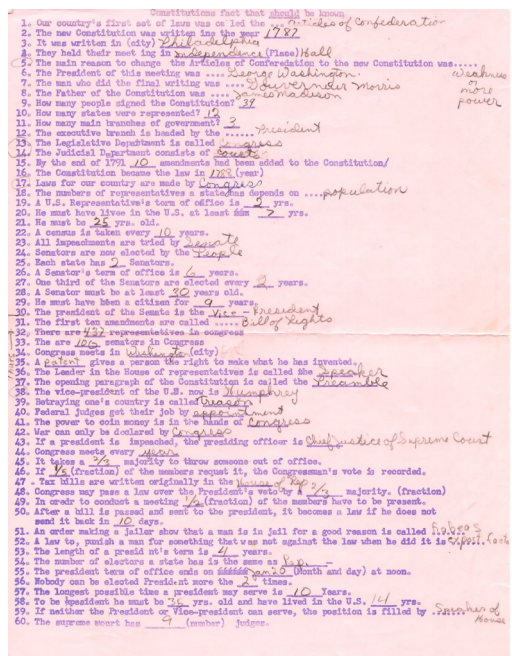 Constitutions fact that should be known
1. Our country's first set of laws was called the ... Articles of Confederation
2. The new Constitution was written ing the year 1787
3. It was written in (city) Philadelphia
4. They held their meeting in Independence (Place) Hall
5. The main reason to change the Articles of Conferedation to the new Constitution was..... Weakness or more power
6. The President of this meeting was .... George Washington.
7. The man who did the final writing was .... Gouverneur Morris
8. The Father of the Constitution was .... James Madison
9. How many people signed the Constitution? 39
10. How many states were represented? 12
11. How many main branches of government? 3
12. The executive branch is headed by the ...... President
13. The Legislative Department is called Congress
14. The Judicial Department consists of Courts
15. By the end of 1791 10 amendments had been added to the Constitution/
16. The Constitution became the law in 1788 (year)
17. Laws for our country are made by Congress
18. The numbers of representatives a state has depends on .... population
19. A U.S. Representative's term of office is 2 yrs.
20. He must have livee in the U.S. at least 7 yrs.
21. He must be 25 yrs. old.
22. A census is taken every 10 years.
23. All impeachments are tried by Senate
24. Senators are now elected by the People
25. Each state has 2 Senators.
26. A Senator's term of office is 6 years.
27. One third of the Senators are elected every 2 years.
28. A Senator must be at least 30 years old.
29. He must have been a citizen for 9 years.
30. The president of the Senate is the Vice - President
31. The first ten amendments are called ..... Bill of Rights
32. There are 437 representatives in congress
33. The are 100 senators in Congress
34. Congress meets in Washington (city)
35. A patent gives a person the right to make what he has invented.
36. The Leader in the House of representatives is called the Speaker
37. The opening paragraph of the Constitution is called the Preamble
38. The vice-president of the U.S. now is Humphrey
39. Betraying one's country is called treason
40. Federal judges get their job by appointment
41. The power to coin money is in the hands of Congress
42. War can only be declared by Congress
43. If a president is impeached, the presiding officer is Chief justice of Supreme Court
44. Congress meets every year
45. It takes a 2/3 majority to throw someone out of office.
46. If 1/5 (fraction) of the members request it, the Congressman's vote is recorded.
47. Tax bills are written originally in the House of Rep
48. Congress may pass a law over the President's veto by a 2/3 majority. (fraction)
49. In oredr to conduct a meeting 1/2 (fraction) of the members have to be present.
50. After a bill is passed and sent to the president, it becomes a law if he does not
send it back in 10 days.
51. An order making a jailer show that a man is in jail for a good reason is called
52. A law to, punish a man for something that was not against the law when he did it is expost facto
53. The length of a presid nt's term is 4 years.
54. The number of electors a state has is the same as Rep. -
55. The president term of office ends on Jan 20 (Month and day) at noon.
56. Nobody can be elected President more the 2 times.
57. The longest possible time a president may serve is 10 Years.
58. To be president he must be 35 yrs. old and have lived in the U.S. 14 yrs.
59. If neither the President or Vice-president can serve, the position is filled by Speaker of House
60. The supreme court has 9 (number) judges.